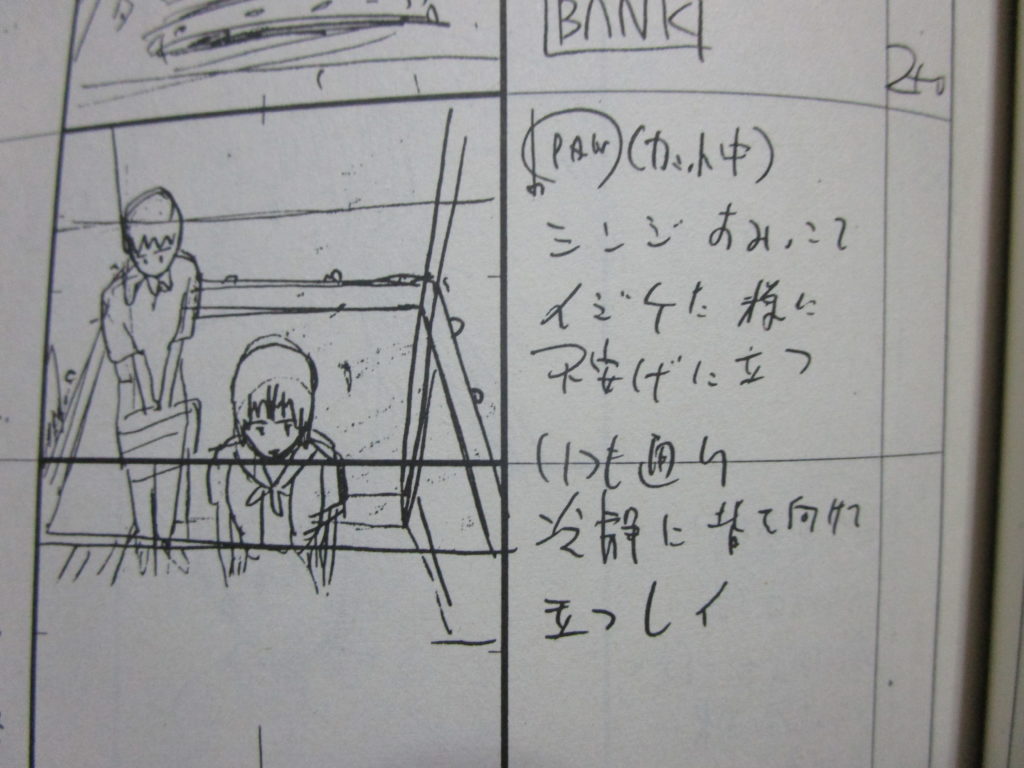 BANK
2+0
PAN (カット中)
シンジ おみこて
イジケた様に
不安げに立つ
いつも通り
冷静に 背を向けて
立つレイ